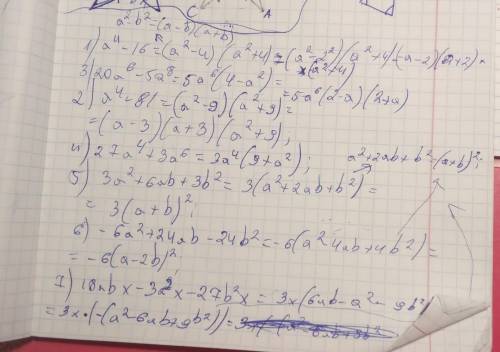 C A
a²-b²=(a-b)(a+b)
1) a⁴-16=(a²-4)(a²+4)=(a²-2²)(a²+4)=(a-2)(a+2)×
×(a²+4)
3) 20a⁶-5a⁸=5a⁶(4-a²)=
=5a⁶(2-a)(2+a)
2) a⁴-81=(a²-9)(a²+9)=
=(a-3)(a+3)(a²+9);
4) 27a⁴+3a⁶=3a⁴(9+a²);
a²+2ab+b²=(a+b)²;
5) 3a²+6ab+3b²=3(a²+2ab+b²)=
=3(a+b)²;
6) -6a²+24ab-24b²=-6(a²-4ab+4b²)=
=-6(a-2b)²;
7) 18abx-3a²x-27b²x=3x(6ab-a²-9b²)
=3x·(-(a²-6ab+9b²))=